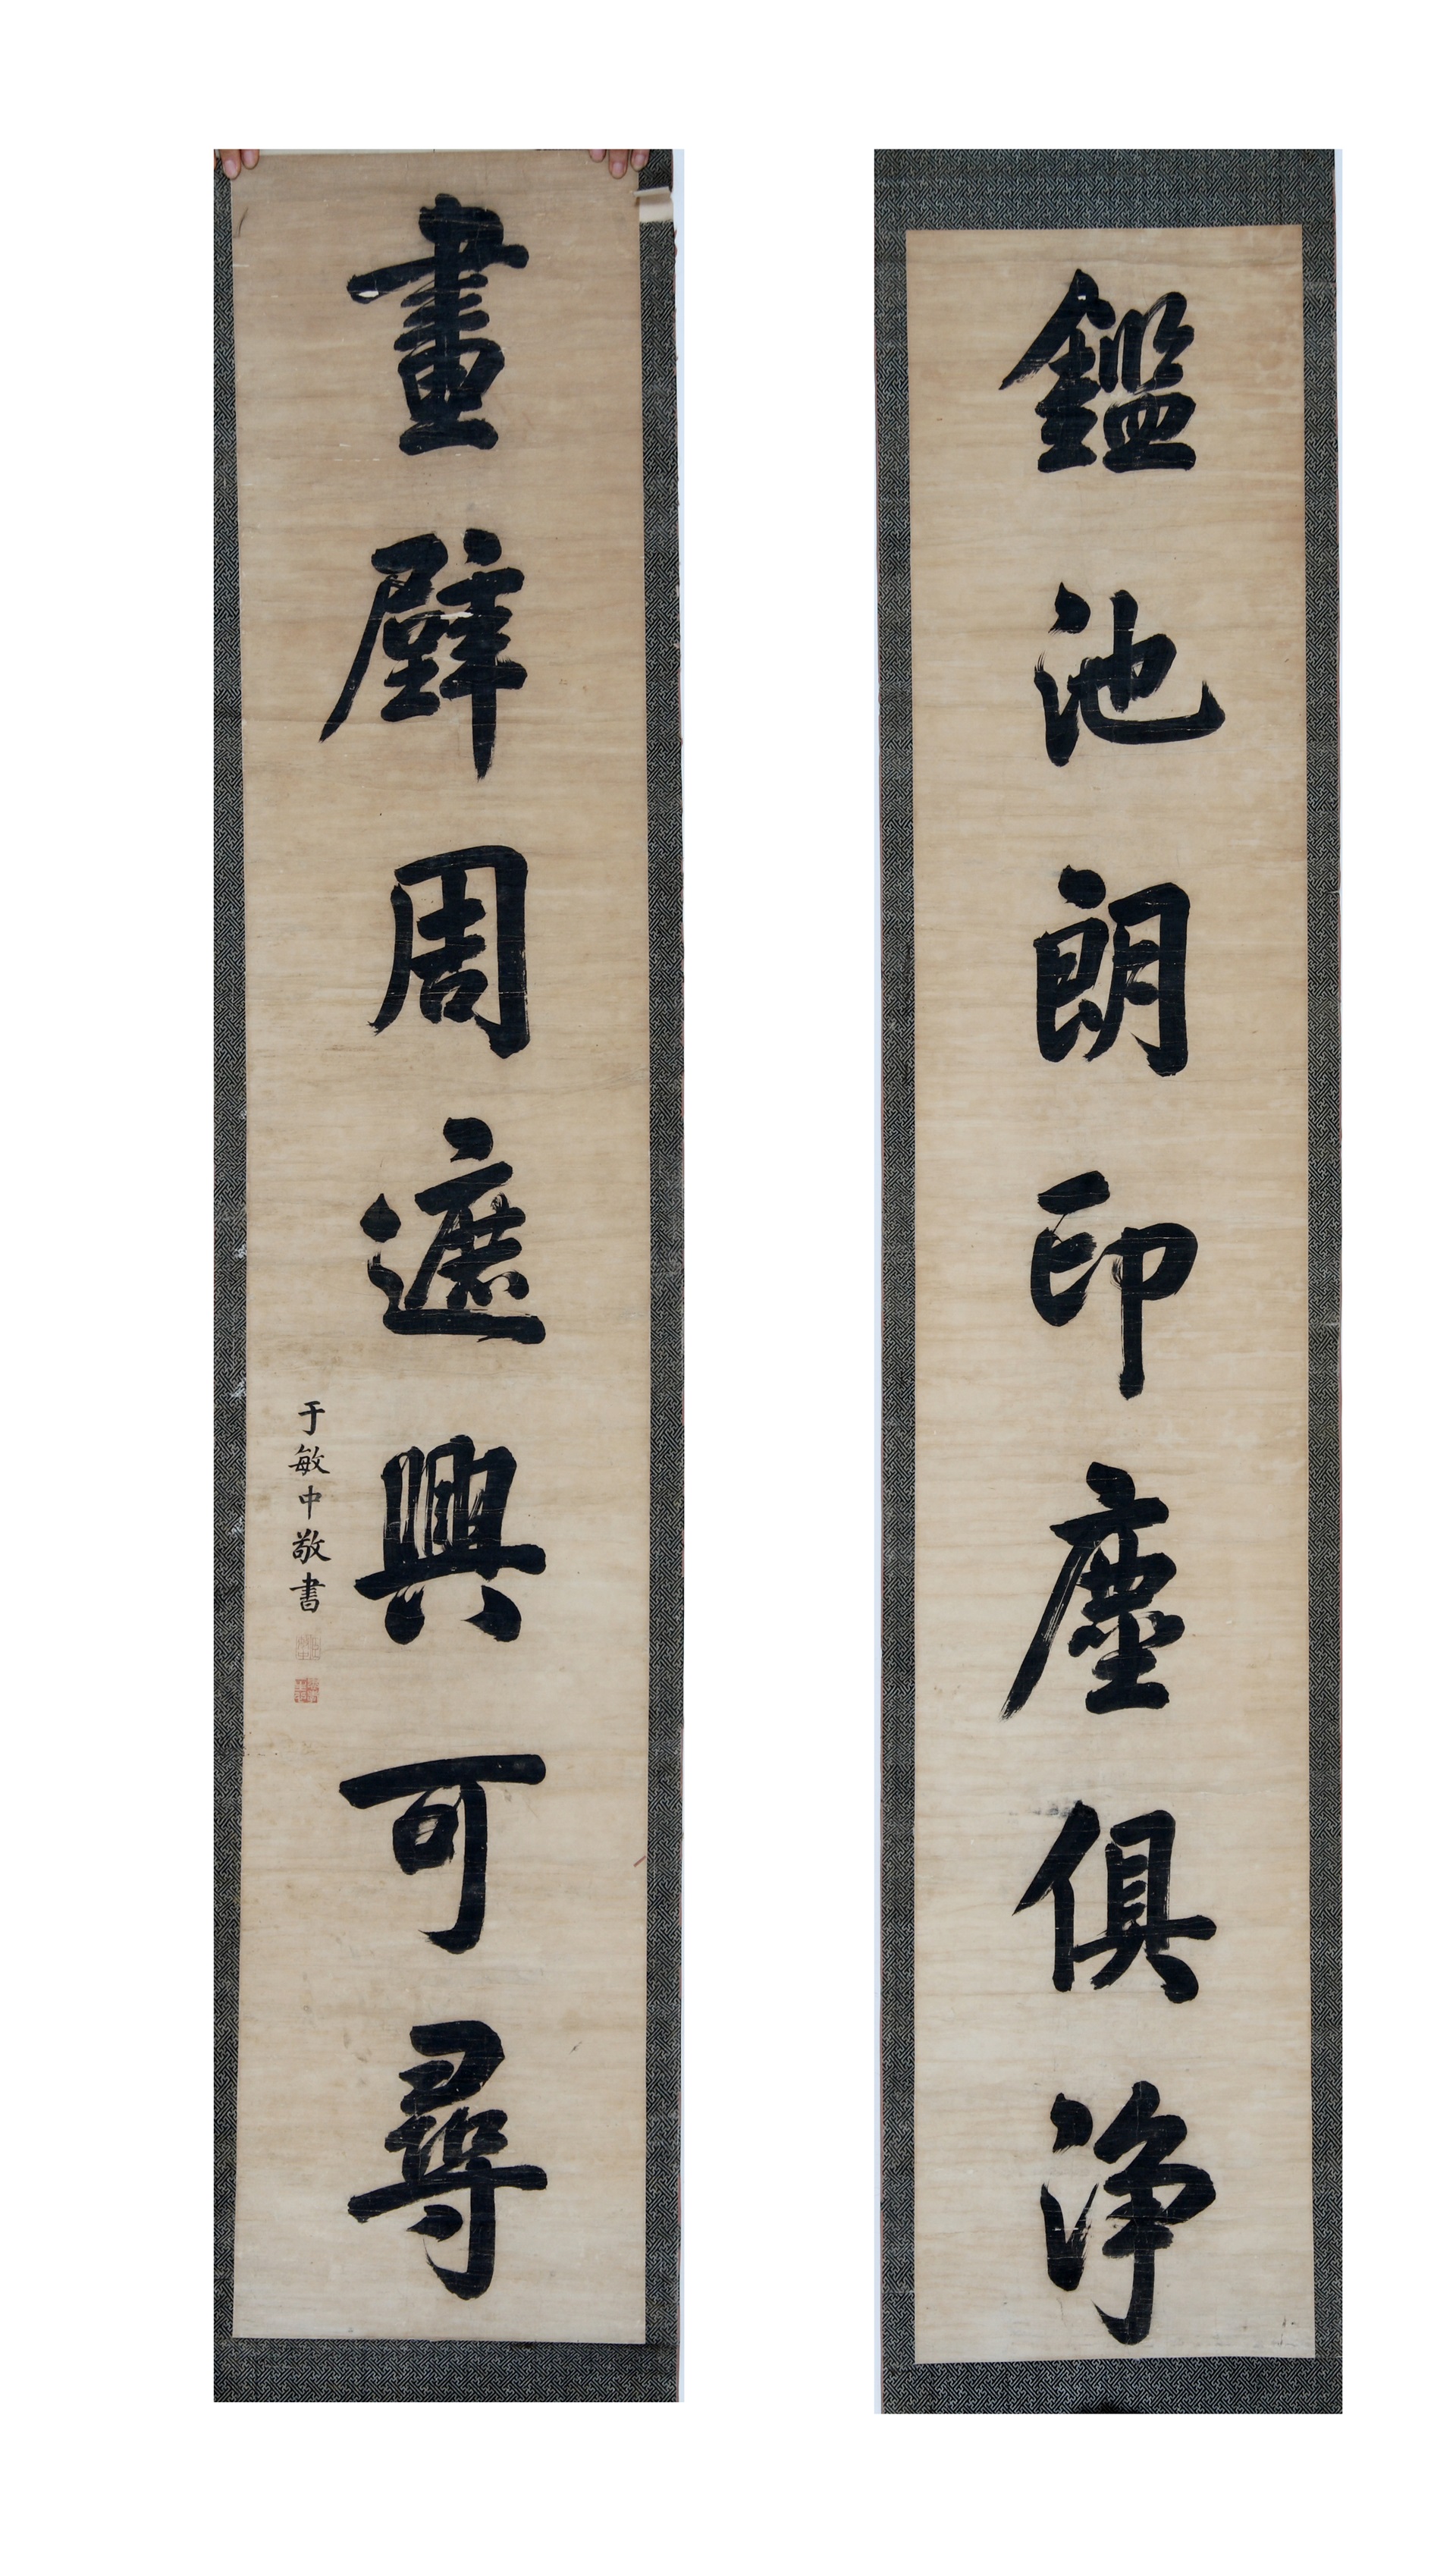 鑑池朗印塵俱浄
畫壁周遮興可尋
于敏中敬書